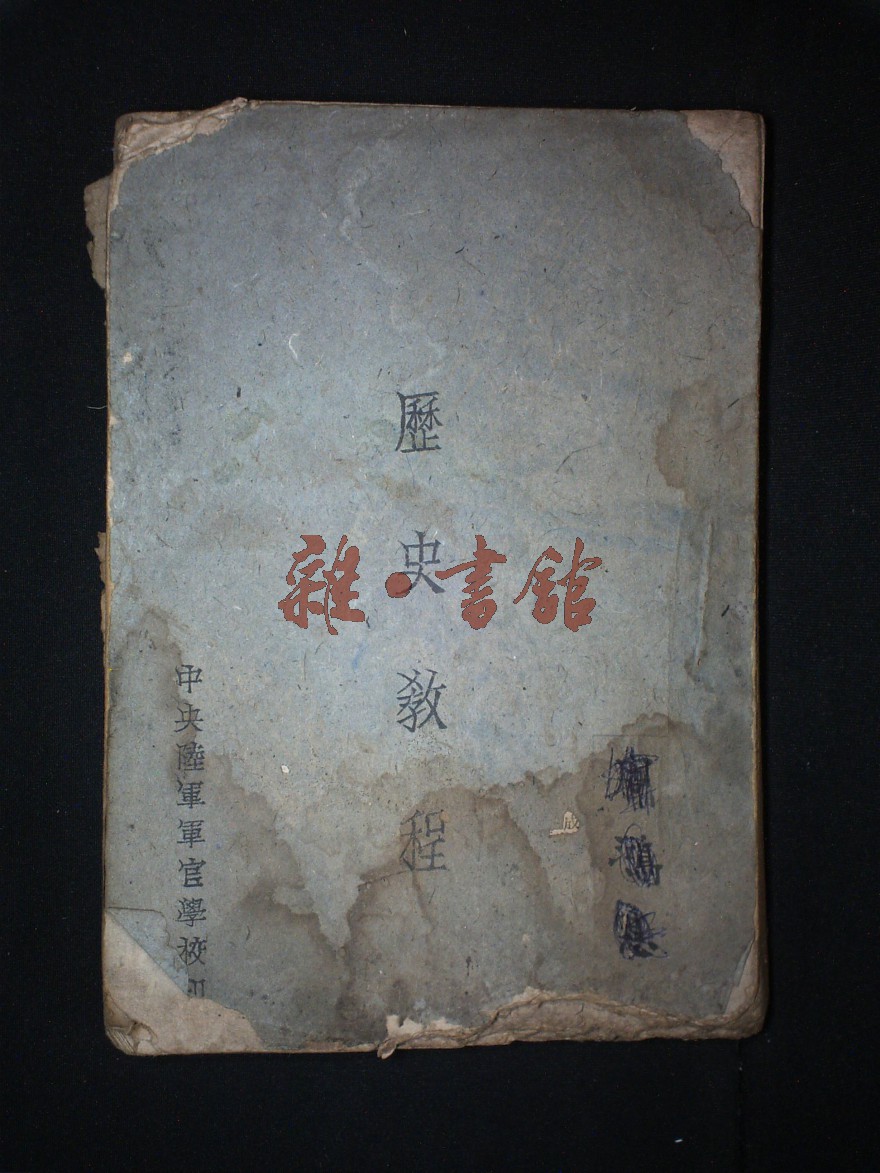 歷史教程
中央陸軍軍官學校
雜·書館